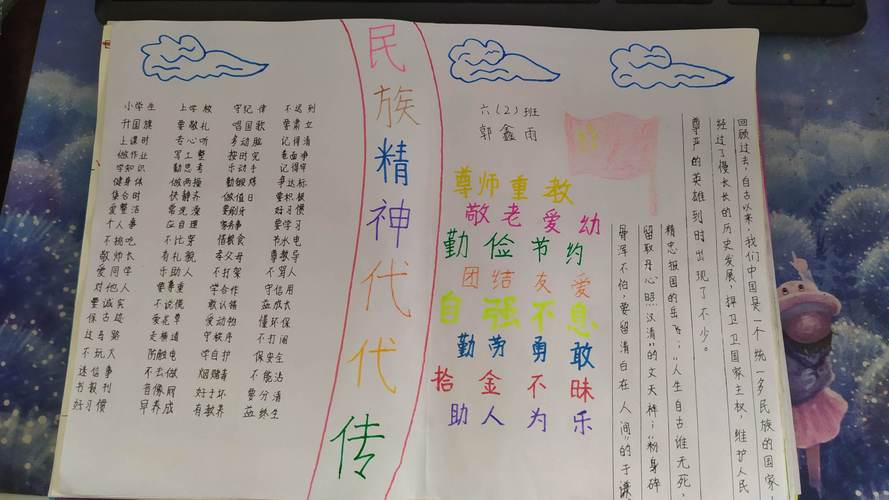 小学生 上学校 守纪律 不迟到
升国旗 要敬礼 唱国歌 要肃立
上课时 专心听 多动脑 记得清
做作业 写工整 按时完 卷面净
学知识 勤思考 乐动手 记得牢
健身体 做两操 勤锻炼 争达标
集合时 快静齐 做值日 要积极
爱整洁 常洗澡 要刷牙 好习惯
个人事 应自理 家务事 要学习
不挑吃 不比穿 惜粮食 节水电
敬师长 有礼貌 孝父母 遵教导
爱同学 乐助人 不打架 不骂人
对他人 要尊重 学合作 守信用
要诚实 不说谎 敢认错 益成长
保古迹 爱花草 爱动物 懂环保
过马路 走横道 守秩序 不打闹
不玩火 防触电 学自护 保安全
迷信事 不去做 烟赌毒 不能沾
书报刊 音像厨 好与坏 要分清
好习惯 早养成 有教养 益终生
民族精神代代传
六(2)班
郭鑫雨
尊师重教
敬老爱幼
勤俭节约
团结友爱
自强不息
勤劳勇敢
拾金不昧
助人为乐
回顾过去,自古以来,我们中国是一个统一多民族的国家
经过了慢长长的历史发展,捍卫卫国家主权,维护人民
尊严的英雄到时出现了不少。
精忠报国的岳飞;"人生自古谁无死,
留取丹心照汉清"的文天祥;"粉身碎
骨浑不怕,要留清白在人间"的于谦